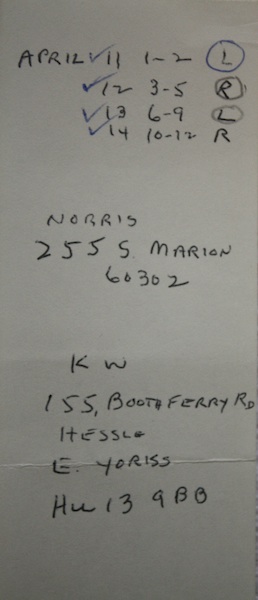 APRIL 11 1-2 L
12 3-5 R
13 6-9 L
14 10-12 R
NORRIS
255 S. MARION
60302
K W
155, BOOTHFERRY RD
HESSLE
E. YORISS
HU 13 9BB